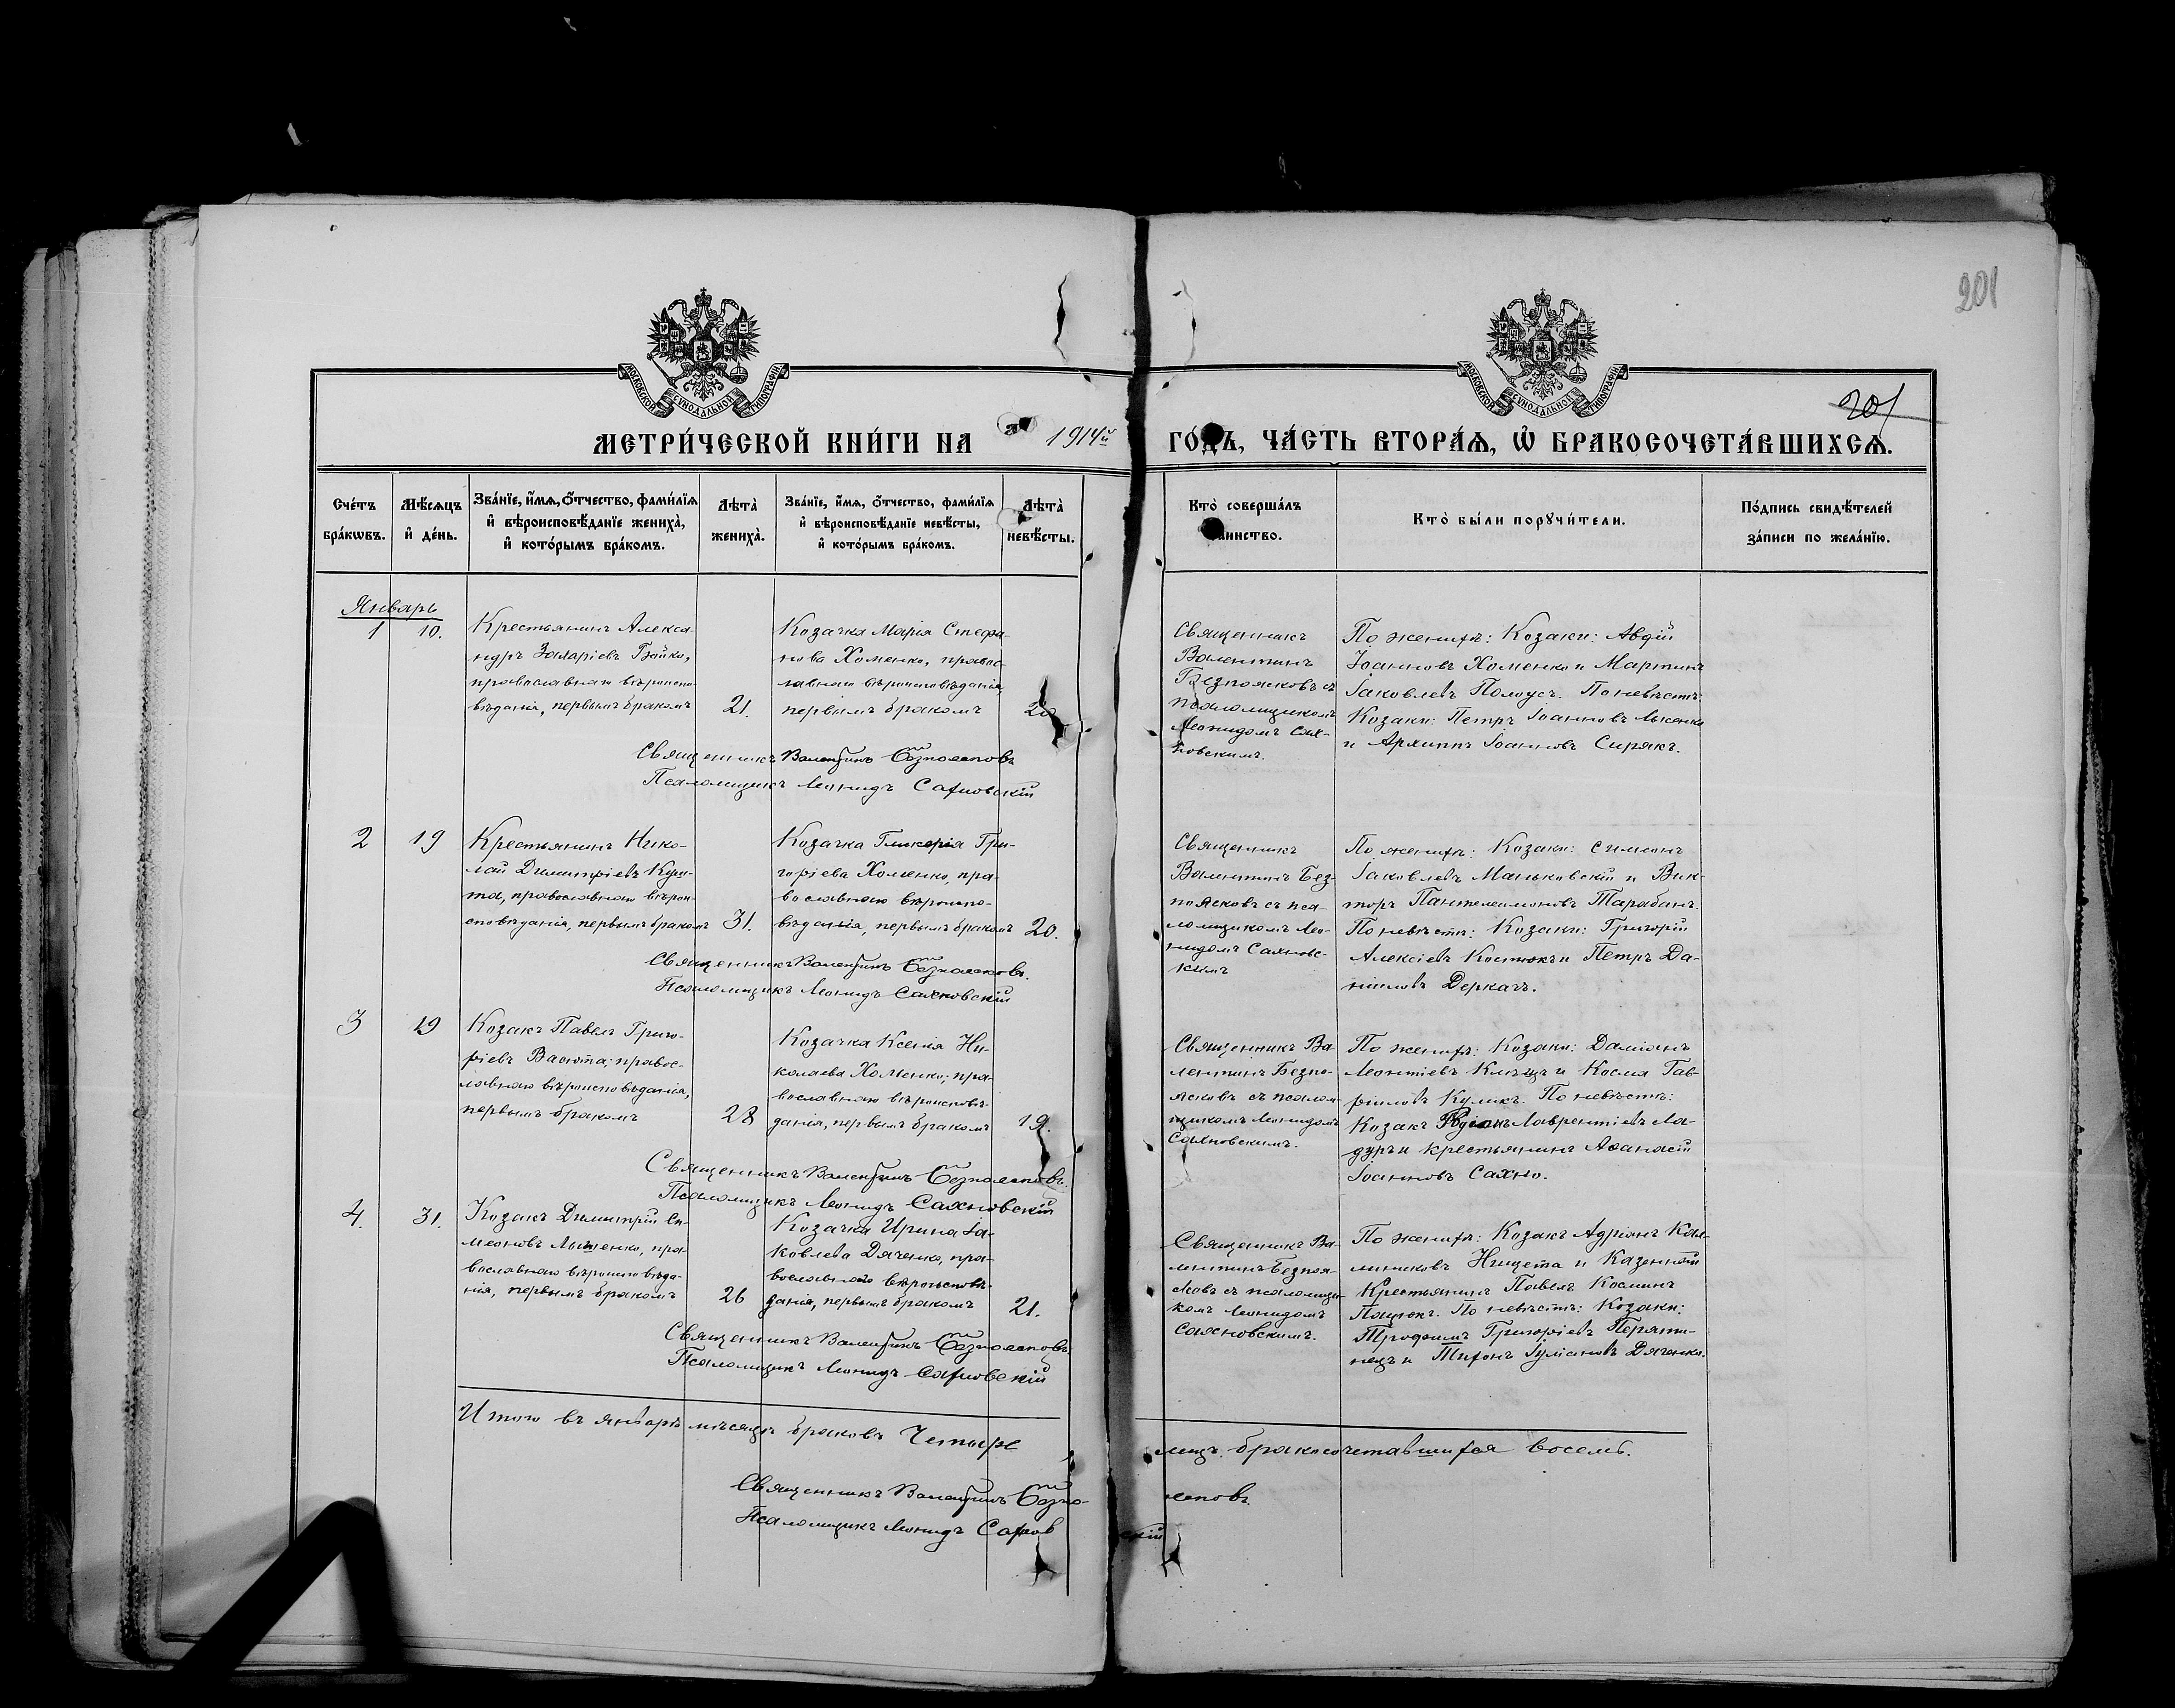 201
МОСКОВСКОЙ СѴНОДАЛЬНОЙ ТИПОГРАФІИ
МОСКОВСКОЙ СѴНОДАЛЬНОЙ ТИПОГРАФІИ
201
МЕТРИ́ЧЕСКОЙ КНИ́ГИ НА 1914й ГО́ДЪ, ЧА́СТЬ ВТОРА́Ѧ, Ѡ҆ БРАКОСОЧЕТА́ВШИХСѦ.
Сче́тъ бра́кѡвъ.
Мѣ́сѧцъ и҆ де́нь.
Зва́нїе, и҆́мѧ, ѻ҆́тчество, фами́лїѧ
и҆ вѣроисповѣ́данїе жениха̀,
и҆ кото́рымъ бра́комъ.
Лѣта̀ жениха̀.
Зва́нїе, и҆́мѧ, ѻ҆́тчество, фами́лїѧ
и҆ вѣроисповѣ́данїе невѣ́сты,
и҆ кото́рымъ бра́комъ.
Лѣта̀ невѣ́сты.
Кто̀ соверша́лъ
таинство.
Кто̀ бы́ли порꙋчи́тели.
По́дпись свидѣ́телей
за́писи по жела́нїю.
Январь
1 10.
Крестьянинъ Алекса-
ндръ Захаріевъ Бойко,
православнаго вѣроиспо-
вѣданія, первымъ бракомъ
21.
Козачка Марія Стефа-
нова Хоменко, правос-
лавнаго вѣроисповѣданія,
первымъ бракомъ
20
Священникъ
Валентинъ
Безпоясковъ съ
псаломщикомъ
Леонидомъ Сах-
новскимъ.
По женихѣ: Козаки: Авдій
Іоанновъ Хоменко и Мартинъ
Іаковлевъ Полоусъ. По невѣстѣ:
Козаки: Петръ Іоанновъ Лысенко
и Архиппъ Іоанновъ Сирякъ.
Священникъ Валентинъ Безпоясковъ
Псаломщикъ Леонидъ Сахновскій
2 19
Крестьянинъ Нико-
лай Димитріевъ
православнаго вѣрои-
сповѣданія, первымъ бракомъ
31.
Козачка Гликерія Гри-
горіева Хоменко, пра-
вославнаго вѣроиспо-
вѣданія, первымъ бракомъ
20.
Священникъ
Валентинъ Без-
поясковъ съ пса-
ломщикомъ Лео-
нидомъ Сахновс-
кимъ
По женихѣ: Козаки: Симеонъ
Іаковлевъ Маньковскій и Вик-
торъ Пантелеимоновъ Тарабанъ.
По невѣстѣ: Козаки: Григорій
Алексіевъ Костюкъ и Петръ Да-
ніиловъ Деркачъ.
Священникъ Валентинъ Безпоясковъ.
Псаломщикъ Леонидъ Сахновскій
3 19
Козакъ Павелъ Григо-
ріевъ Васюта; правос-
лавнаго вѣроисповѣданія,
первымъ бракомъ
28
Козачка Ксенія Ни-
колаева Хоменко; пра-
вославнаго вѣроисповѣ-
данія, первымъ бракомъ
19.
Священникъ Ва-
лентинъ Безпо-
ясковъ съ псалом-
щикомъ Леонидомъ
Сахновскимъ.
По женихѣ: Козаки: Даміанъ
Леонтіевъ и Косма Гав-
ріиловъ Куликъ. По невѣстѣ:
Козакъ Лаврентіевъ Ла-
дуръ и крестьянинъ Аѳанасій
Іоанновъ Сахно.
Священникъ Валентинъ Безпоясковъ.
Псаломщикъ Леонидъ Сахновскій
4. 31.
Козакъ Димитрій Си-
меоновъ пра-
вославнаго вѣроисповѣда-
нія, первымъ бракомъ
26
Козачка Ирина Іа-
ковлева Дяченко, пра-
вославнаго вѣроисповѣ-
данія, первымъ бракомъ
21.
Священникъ Ва-
лентинъ Безпоя-
сковъ съ псаломщи-
комъ Леонидомъ
Сахновскимъ.
По женихѣ: Козакъ Адріанъ Кал-
линиковъ Нищета и Казенный
Крестьянинъ Павелъ Косминъ
Пацюкъ. По невѣстѣ: Козаки:
Трофимъ Григоріевъ Пиряти-
нецъ и Тихонъ Іуліановъ Дяченко.
Священникъ Валентинъ Безпоясковъ
Псаломщикъ Леонидъ Сахновскій
Итого въ январѣ мѣсяцѣ браковъ Четыре лицъ бракосочетавшихся восемь.
Священникъ Валентинъ Безпоясковъ.
Псаломщикъ Леонидъ Сахновскій